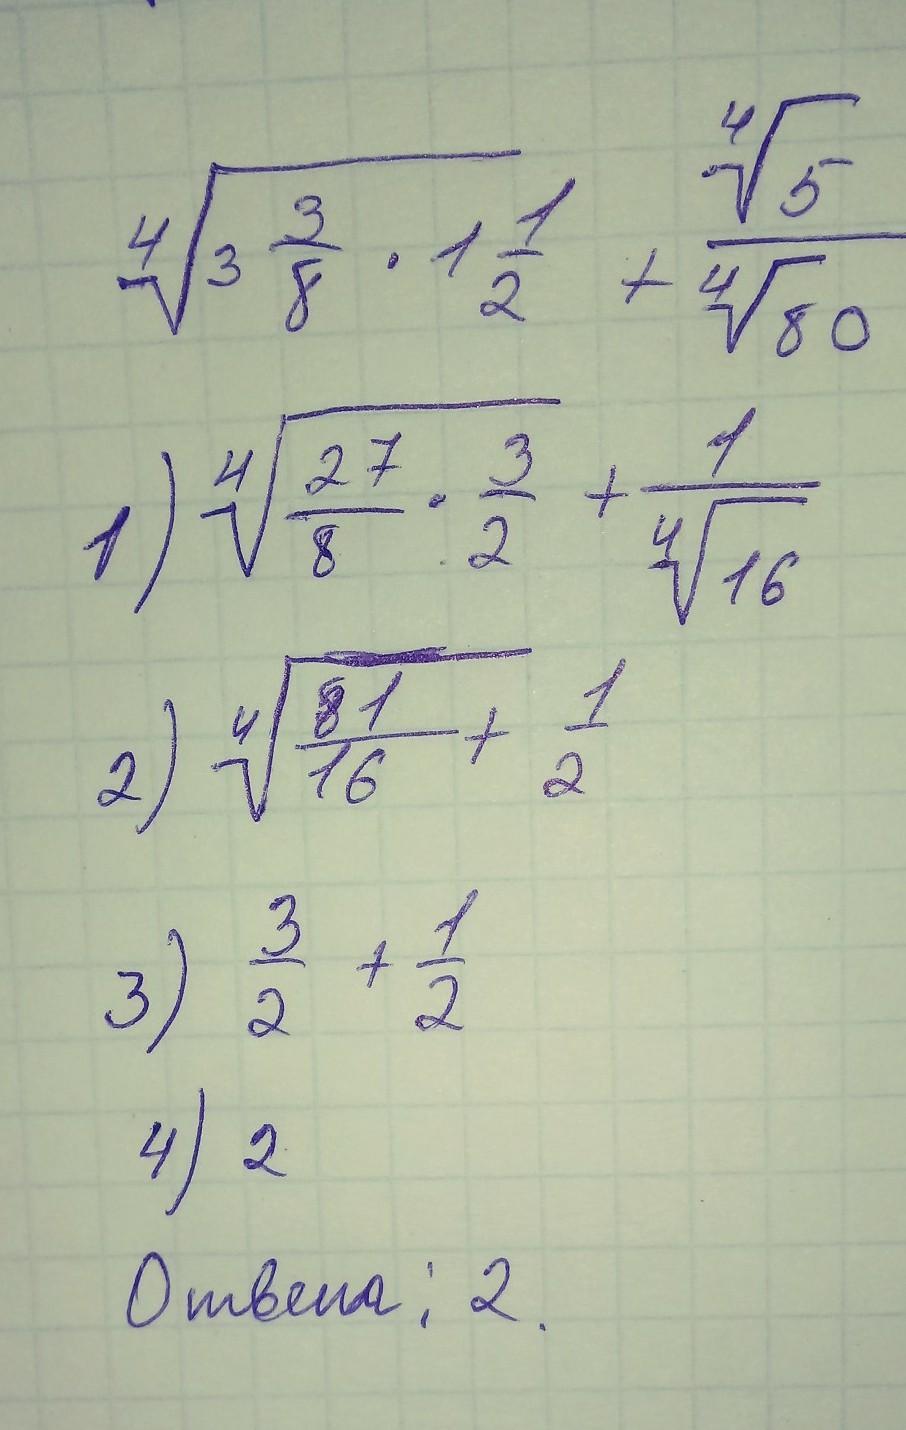 ⁴√(3 3/8 · 1 1/2) + ⁴√5/⁴√80
1) ⁴√(27/8 · 3/2) + 1/⁴√16
2) ⁴√(81/16) + 1/2
3) 3/2 + 1/2
4) 2
Ответ: 2.